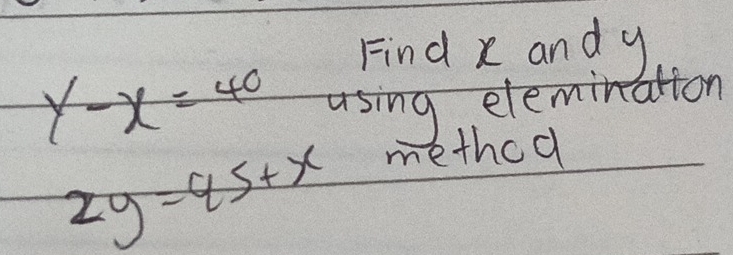 Find x and y
y-x=40 using elemination
method
2y=95+x